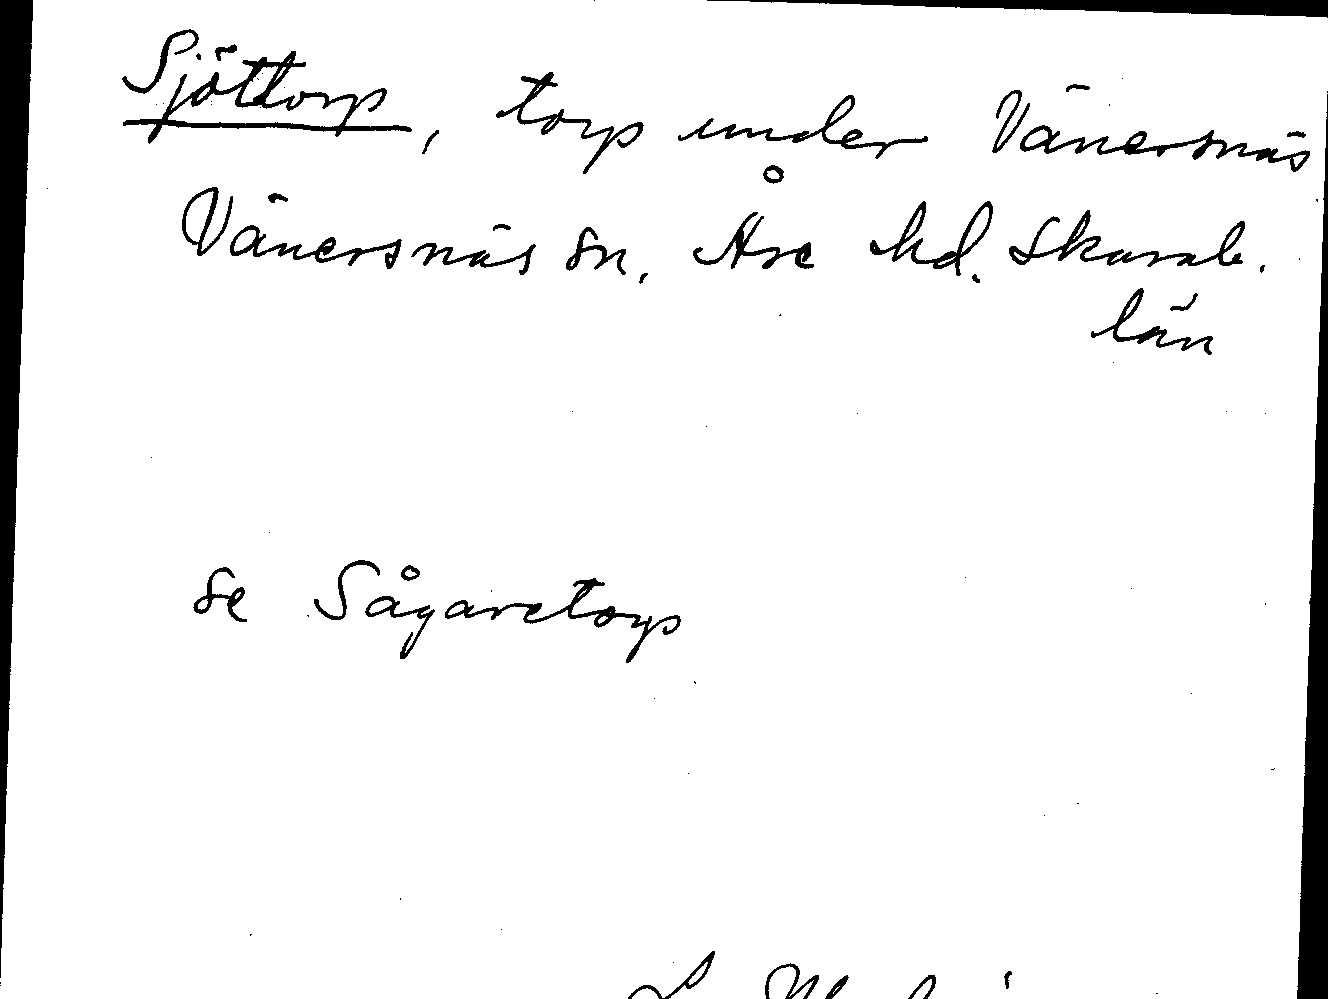 Sjöttorp, torp under Vänersnäs
Vänersnäs sn. Åse hd. Skarab.
län
se Sågaretorp